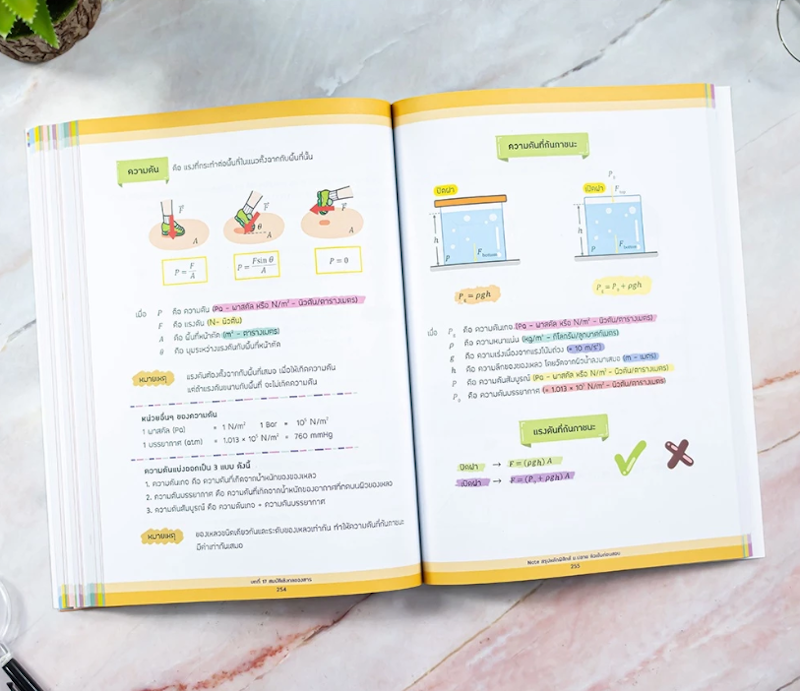 ความดัน คือ แรงที่กระทำต่อพื้นที่ในแนวตั้งฉากกับพื้นที่นั้น
F
A
F
θ
A
F
A
P = F/A
P = Fsin θ/A
P = 0
เมื่อ P คือ ความดัน (Pa - พาสคัล หรือ N/m² - นิวตัน/ตารางเมตร)
F คือ แรงดัน (N- นิวตัน)
A คือ พื้นที่หน้าตัด (m² - ตารางเมตร)
θ คือ มุมระหว่างแรงดันกับพื้นที่หน้าตัด
หมายเหตุ แรงดันต้องตั้งฉากกับพื้นที่เสมอ เพื่อให้เกิดความดัน
แต่ถ้าแรงดันขนานกับพื้นที่ จะไม่เกิดความดัน
หน่วยอื่นๆ ของความดัน
1 พาสคัล (Pa) = 1 N/m² 1 Bar = 10⁵ N/m²
1 บรรยากาศ (atm) = 1.013 × 10⁵ N/m² = 760 mmHg
ความดันแบ่งออกเป็น 3 แบบ ดังนี้
1. ความดันเกจ คือ ความดันที่เกิดจากน้ำหนักของของเหลว
2. ความดันบรรยากาศ คือ ความดันที่เกิดจากน้ำหนักของอากาศที่กดบนผิวของเหลว
3. ความดันสัมบูรณ์ คือ ความดันเกจ + ความดันบรรยากาศ
หมายเหตุ ของเหลวชนิดเดียวกันและระดับของเหลวเท่ากัน ทำให้ความดันที่ก้นภาชนะ
มีค่าเท่ากันเสมอ
บทที่ 17 สมบัติเชิงกลของสาร
254
ความดันที่ก้นภาชนะ
ปิดฝา
h
ρ
F bottom
เปิดฝา
P₀
F top
h
ρ
F bottom
Pg = ρgh
P = P₀ + ρgh
เมื่อ Pg คือ ความดันเกจ (Pa - พาสคัล หรือ N/m² - นิวตัน/ตารางเมตร)
ρ คือ ความหนาแน่น (kg/m³ - กิโลกรัม/ลูกบาศก์เมตร)
g คือ ความเร่งเนื่องจากแรงโน้มถ่วง (≈ 10 m/s²)
h คือ ความลึกของของเหลว โดยวัดจากผิวน้ำลงมาเสมอ (m - เมตร)
P คือ ความดันสัมบูรณ์ (Pa - พาสคัล หรือ N/m² - นิวตัน/ตารางเมตร)
P₀ คือ ความดันบรรยากาศ (≈ 1.013 × 10⁵ N/m² - นิวตัน/ตารางเมตร)
แรงดันที่ก้นภาชนะ
ปิดฝา → F = (ρgh) A
เปิดฝา → F = (P₀ + ρgh) A
255